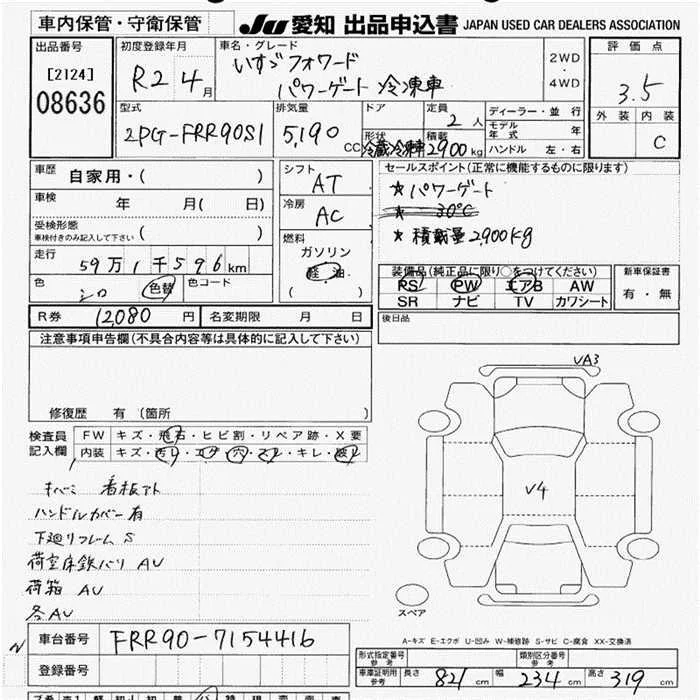 車内保管・守衛保管
JU 愛知 出品申込書 JAPAN USED CAR DEALERS ASSOCIATION
出品番号
[2124]
08636
初度登録年月
R2 4月
車名・グレード
いすゞフォワード
パワーゲート 冷凍車
2WD
・
4WD
評価点
3.5
外装 内装
C
型式
2PG-FRR90S1
排気量
5,190 CC
ドア
形状
冷蔵冷凍車
定員
2人
積載
2900kg
ディーラー・並行
モデル年式 年
ハンドル 左・右
車歴
自家用・( )
車検
年 月( 日)
受検形態
車検付きのみ記入して下さい ( )
走行
59万1千596km
色
シロ 色替 色コード
シフト
AT
冷房
AC
燃料
ガソリン
軽油
( )
セールスポイント(正常に機能するものに限ります)
★パワーゲート
★ -30℃
★積載量2900kg
装備品(純正品に限り○をつけてください)
PS PW エアB AW
SR ナビ TV カワシート
新車保証書
有・無
R券 12080円 名変期限 月 日
後日品
注意事項申告欄(不具合内容等は具体的に記入して下さい)
修復歴 有 〔箇所 〕
検査員
記入欄
FW キズ・飛石・ヒビ割・リペア跡・X要
内装 キズ・汚レ・コゲ・穴・スレ・キレ・破レ
看板アト
ハンドルカバー有
下廻リフレームS
荷室床鉄バリ AU
荷箱 AU
各AU
VA3
V4
スペア
A-キズ E-エクボ U-凹み W-補修跡 S-サビ C-腐食 XX-交換済
車台番号 FRR90-7154416
登録番号
形式指定番号
参考
類別区分番号
参考
車庫証明用
参考
長さ 821cm 幅 234cm 高さ 319cm